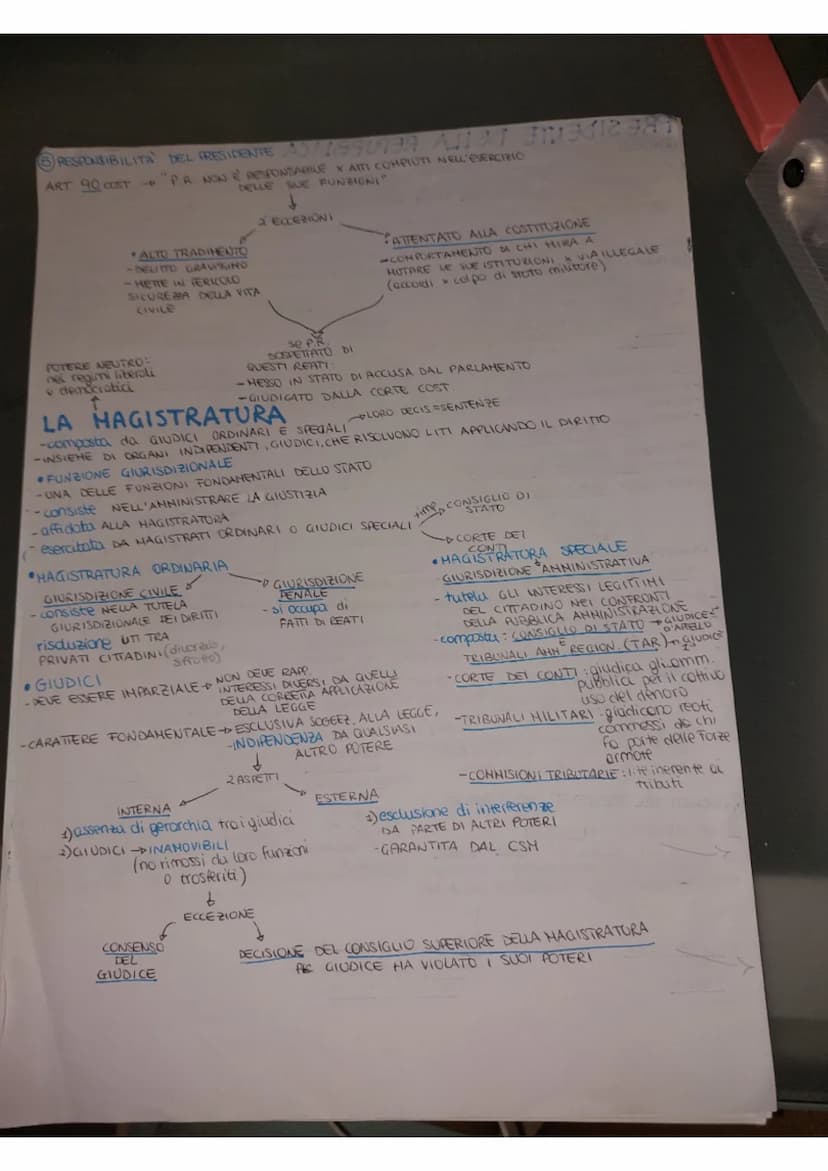 PRESIDENTE DELLA REPUBBLICA
⑤ RESPONSABILITA' DEL PRESIDENTE
ART 90 COST → "P.R. NON È RESPONSABILE x ATTI COMPIUTI NELL'ESERCIZIO
DELLE SUE FUNZIONI"
2 ECCEZIONI
• ALTO TRADIMENTO
- DELITTO GRAVISSIMO
- METTE IN PERICOLO
SICUREZZA DELLA VITA
CIVILE
• ATTENTATO ALLA COSTITUZIONE
- COMPORTAMENTO DI CHI MIRA A
MUTARE LE SUE ISTITUZIONI x VIA ILLEGALE
(accordi x colpo di stato militare)
se P.R.
SOSPETTATO DI
QUESTI REATI:
- MESSO IN STATO DI ACCUSA DAL PARLAMENTO
- GIUDICATO DALLA CORTE COST
POTERE NEUTRO:
nei regimi liberali
e democratici
LA MAGISTRATURA
- composta da GIUDICI ORDINARI E SPECIALI → LORO DECIS = SENTENZE
- INSIEME DI ORGANI INDIPENDENTI, GIUDICI, CHE RISOLVONO LITI APPLICANDO IL DIRITTO
• FUNZIONE GIURISDIZIONALE
- UNA DELLE FUNZIONI FONDAMENTALI DELLO STATO
- consiste NELL'AMMINISTRARE LA GIUSTIZIA
- affidata ALLA MAGISTRATURA
- esercitata DA MAGISTRATI ORDINARI O GIUDICI SPECIALI
→ CONSIGLIO DI
STATO
→ CORTE DEI
CONTI
• MAGISTRATURA ORDINARIA
GIURISDIZIONE CIVILE
- consiste NELLA TUTELA
GIURISDIZIONALE DEI DIRITTI
risoluzione LITI TRA
PRIVATI CITTADINI (divorzio,
GIURISDIZIONE
PENALE
- si occupa di
FATTI DI REATI
• MAGISTRATURA SPECIALE
GIURISDIZIONE AMMINISTRATIVA
- tutela GLI INTERESSI LEGITTIMI
DEL CITTADINO NEI CONFRONTI
DELLA PUBBLICA AMMINISTRAZIONE
- composta: CONSIGLIO DI STATO → GIUDICE
D'APPELLO
E
TRIBUNALI AMM REGION. (TAR) → GIUDICE
- CORTE DEI CONTI: giudica gli amm.
pubblica per il cattivo
uso del denaro
- TRIBUNALI MILITARI: giudicano reati
commessi da chi
fa parte delle forze
armate
- COMMISIONI TRIBUTARIE: lite inerente ai
tributi
• GIUDICI
- DEVE ESSERE IMPARZIALE → NON DEVE RAPP.
INTERESSI DIVERSI DA QUELLI
DELLA CORRETTA APPLICAZIONE
DELLA LEGGE
- CARATTERE FONDAMENTALE → ESCLUSIVA SOGGEZ. ALLA LEGGE,
- INDIPENDENZA DA QUALSIASI
ALTRO POTERE
2 ASPETTI
INTERNA
1) assenza di gerarchia tra i giudici
2) GIUDICI → INAMOVIBILI
(no rimossi da loro funzioni
o trasferiti)
ESTERNA
1) esclusione di interferenze
DA PARTE DI ALTRI POTERI
- GARANTITA DAL CSM
ECCEZIONE
CONSENSO
DEL
GIUDICE
DECISIONE DEL CONSIGLIO SUPERIORE DELLA MAGISTRATURA
GIUDICE HA VIOLATO I SUOI POTERI